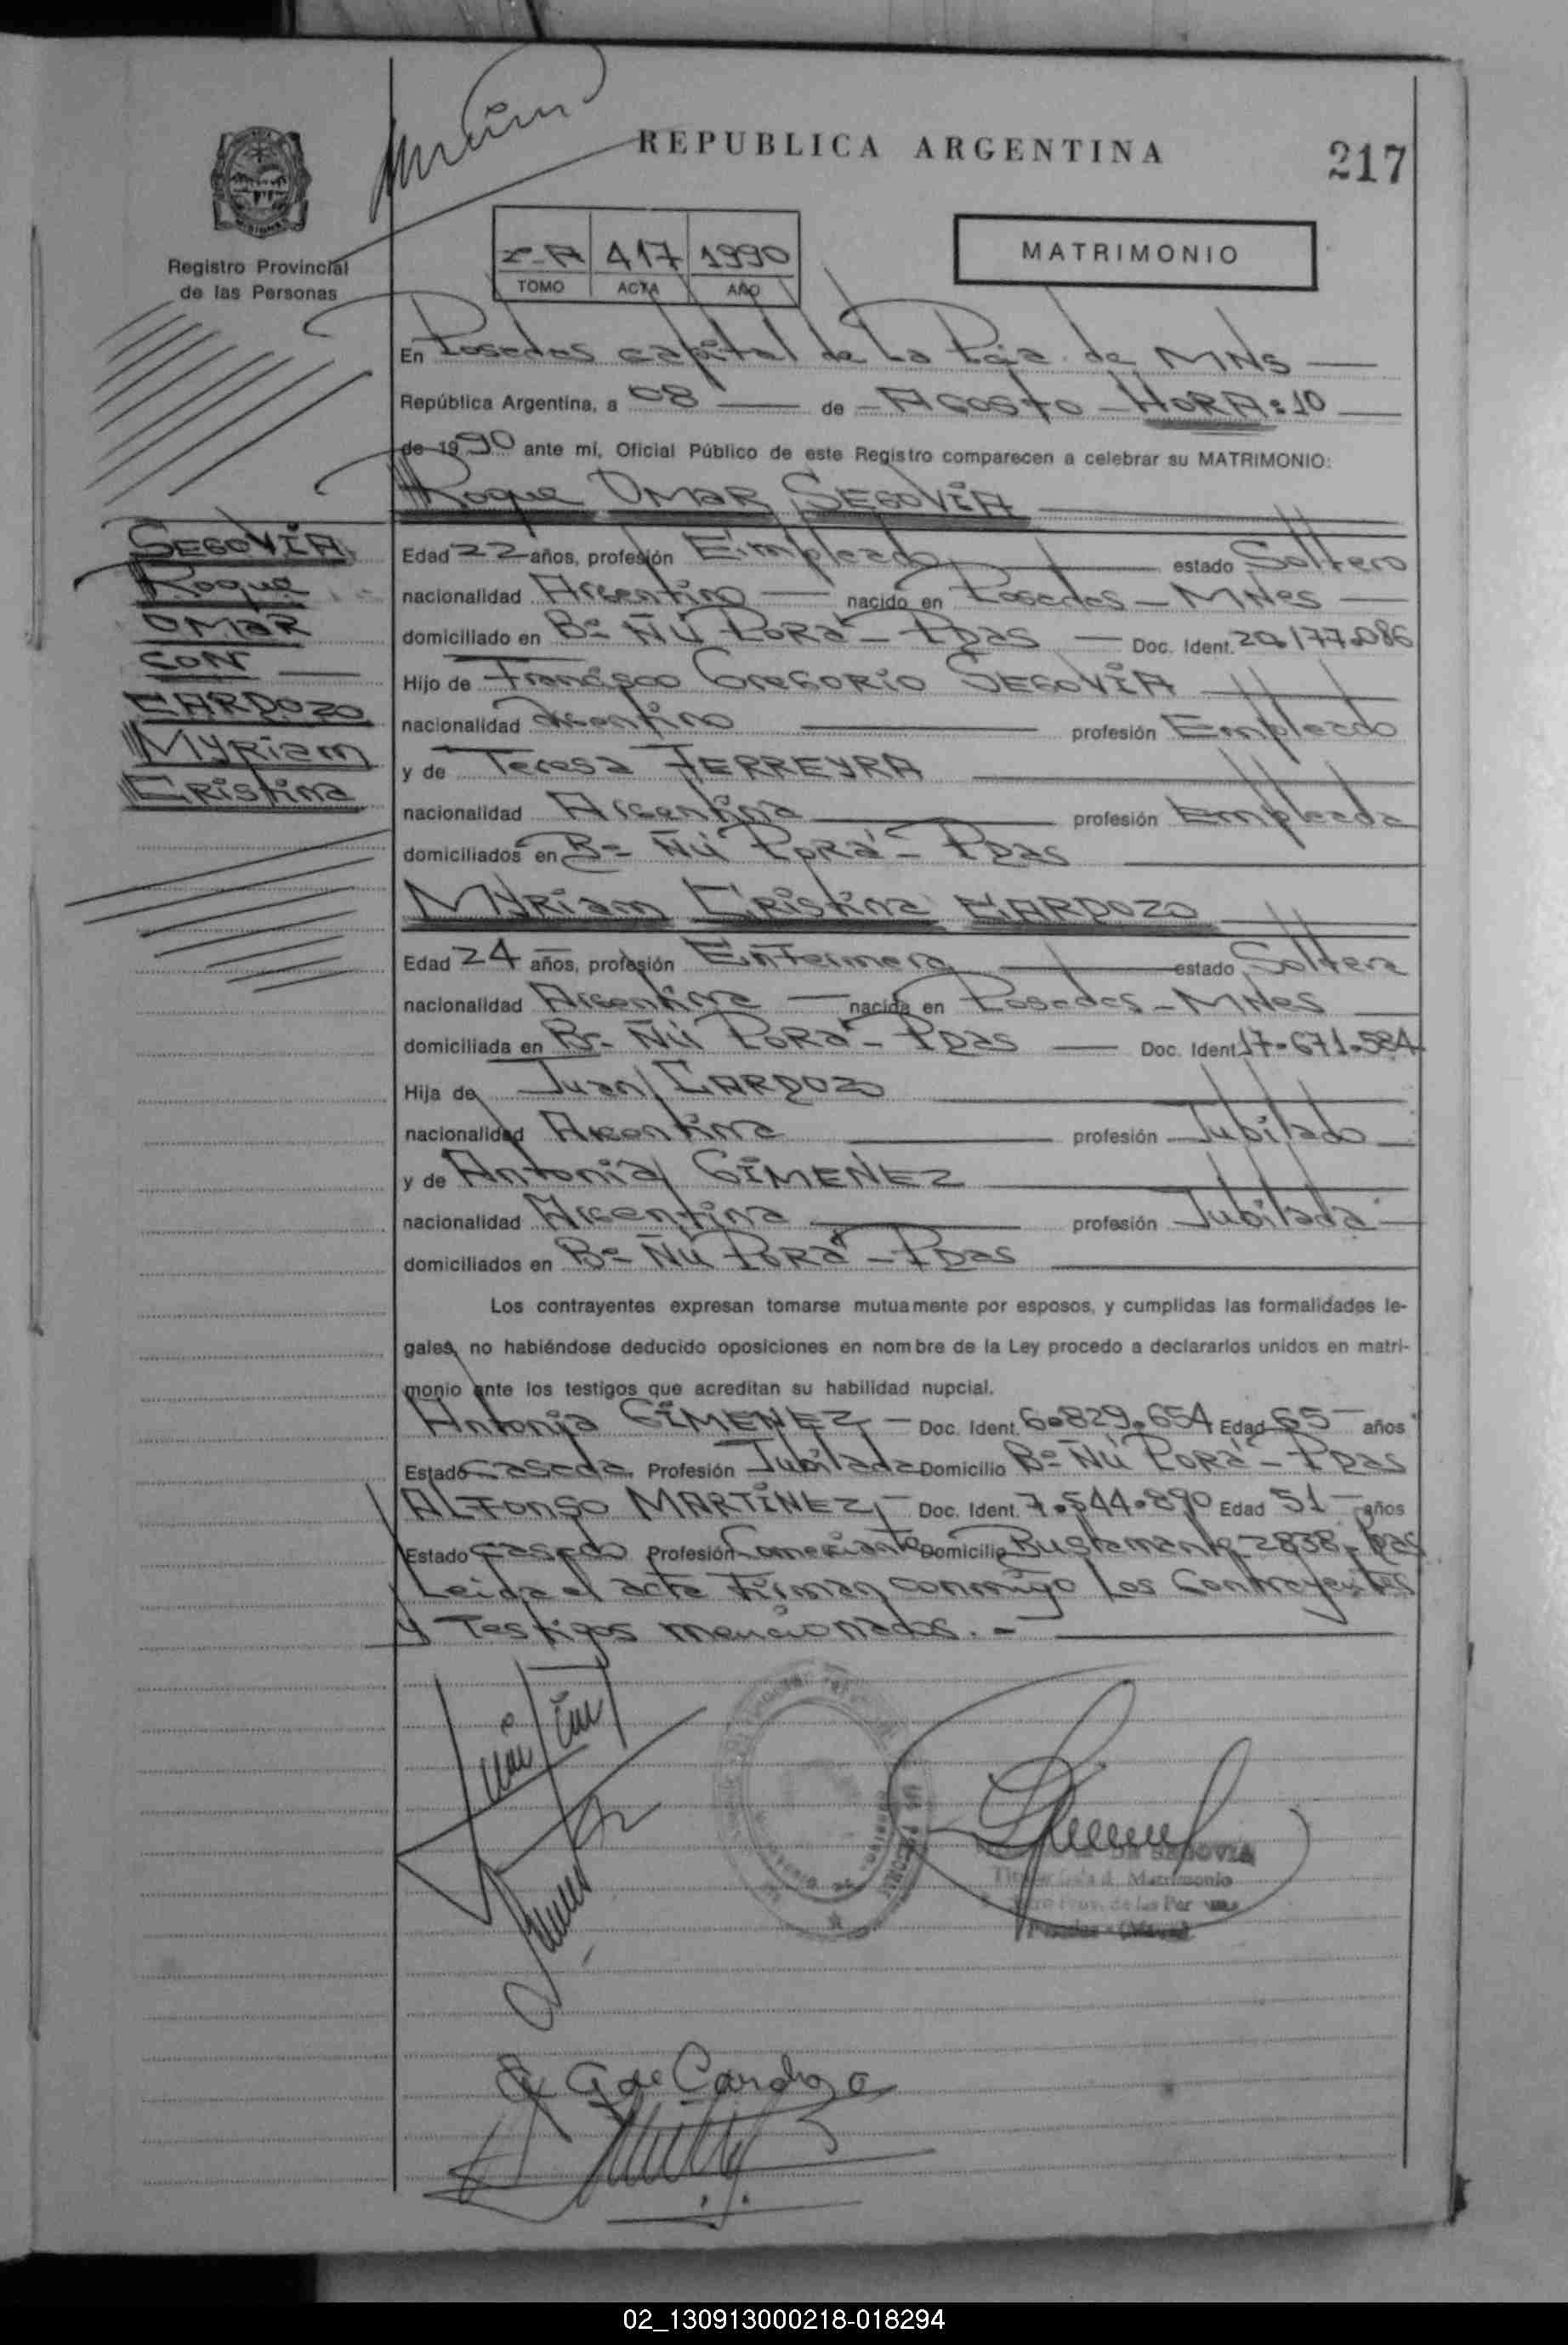 REPUBLICA ARGENTINA
217
Registro Provincial
de las Personas
2º-A 417 1990
TOMO ACTA AÑO
MATRIMONIO
En Posadas capital de La Pcia. de MNS
República Argentina, a 08 de AGOSTO - HORA: 10
de 1990 ante mí, Oficial Público de este Registro comparecen a celebrar su MATRIMONIO:
Roque OMAR SEGOVIA
SEGOVIA
Roque
OMAR
CON
CARDOZO
Myriam
Cristina
Edad 22 años, profesión Empleado estado Soltero
nacionalidad Argentino nacido en Posadas - MNes
domiciliado en Bº ÑÚ PORÁ - PDAS Doc. Ident. 20.177.086
Hijo de Francisco GREGORIO SEGOVIA
nacionalidad Argentino profesión Empleado
y de Teresa FERREYRA
nacionalidad Argentina profesión Empleada
domiciliados en Bº ÑÚ PORÁ - PDAS
MYRIAM CRISTINA CARDOZO
Edad 24 años, profesión Enfermera estado Soltera
nacionalidad Argentina nacida en Posadas - MNes
domiciliada en Bº ÑÚ PORÁ - PDAS Doc. Ident. 17.671.584
Hija de Juan CARDOZO
nacionalidad Argentina profesión Jubilado
y de Antonia GIMENEZ
nacionalidad Argentina profesión Jubilada
domiciliados en Bº ÑÚ PORÁ - PDAS
Los contrayentes expresan tomarse mutuamente por esposos, y cumplidas las formalidades le-
gales, no habiéndose deducido oposiciones en nombre de la Ley procedo a declararlos unidos en matri-
monio ante los testigos que acreditan su habilidad nupcial.
Antonia GIMENEZ - Doc. Ident. 6.829.654 Edad 65 años
Estado Casada Profesión Jubilada Domicilio Bº ÑÚ PORÁ - PDAS
ALFONSO MARTINEZ - Doc. Ident. 7.544.890 Edad 51 años
Estado Casado Profesión Comerciante Domicilio Bustamante 2838. Pdas
Leida el acta firman conmigo los Contrayentes
y Testigos mencionados. -
DE SEGOVIA
Matrimonio
de las Per
A G de Cardozo
02_130913000218-018294